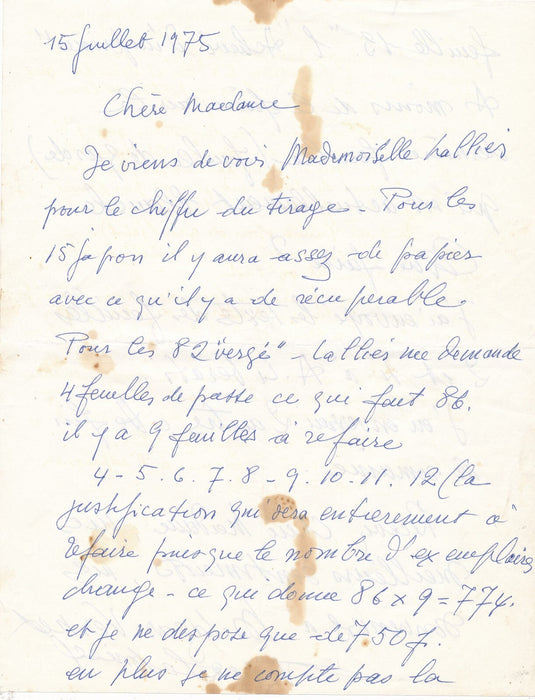 15 juillet 1975
Chère Madame
Je viens de voir Mademoiselle Lalliés
pour le chiffre du tirage - Pour les
15 japon il y aura assez de papier
avec ce qu'il y a de récuperable.
Pour les 82 "vergé" - Lalliés me demande
4 feuilles de passe ce qui fait 86.
il y a 9 feuilles à refaire
4 - 5. 6. 7. 8 - 9. 10 - 11. 12 (la
justification qui sera entierement à
refaire puisque le nombre d'exemplaires
change - ce qui donne 86 x 9 = 774.
et je ne dispose que de 750 f.
en plus je ne compte pas la